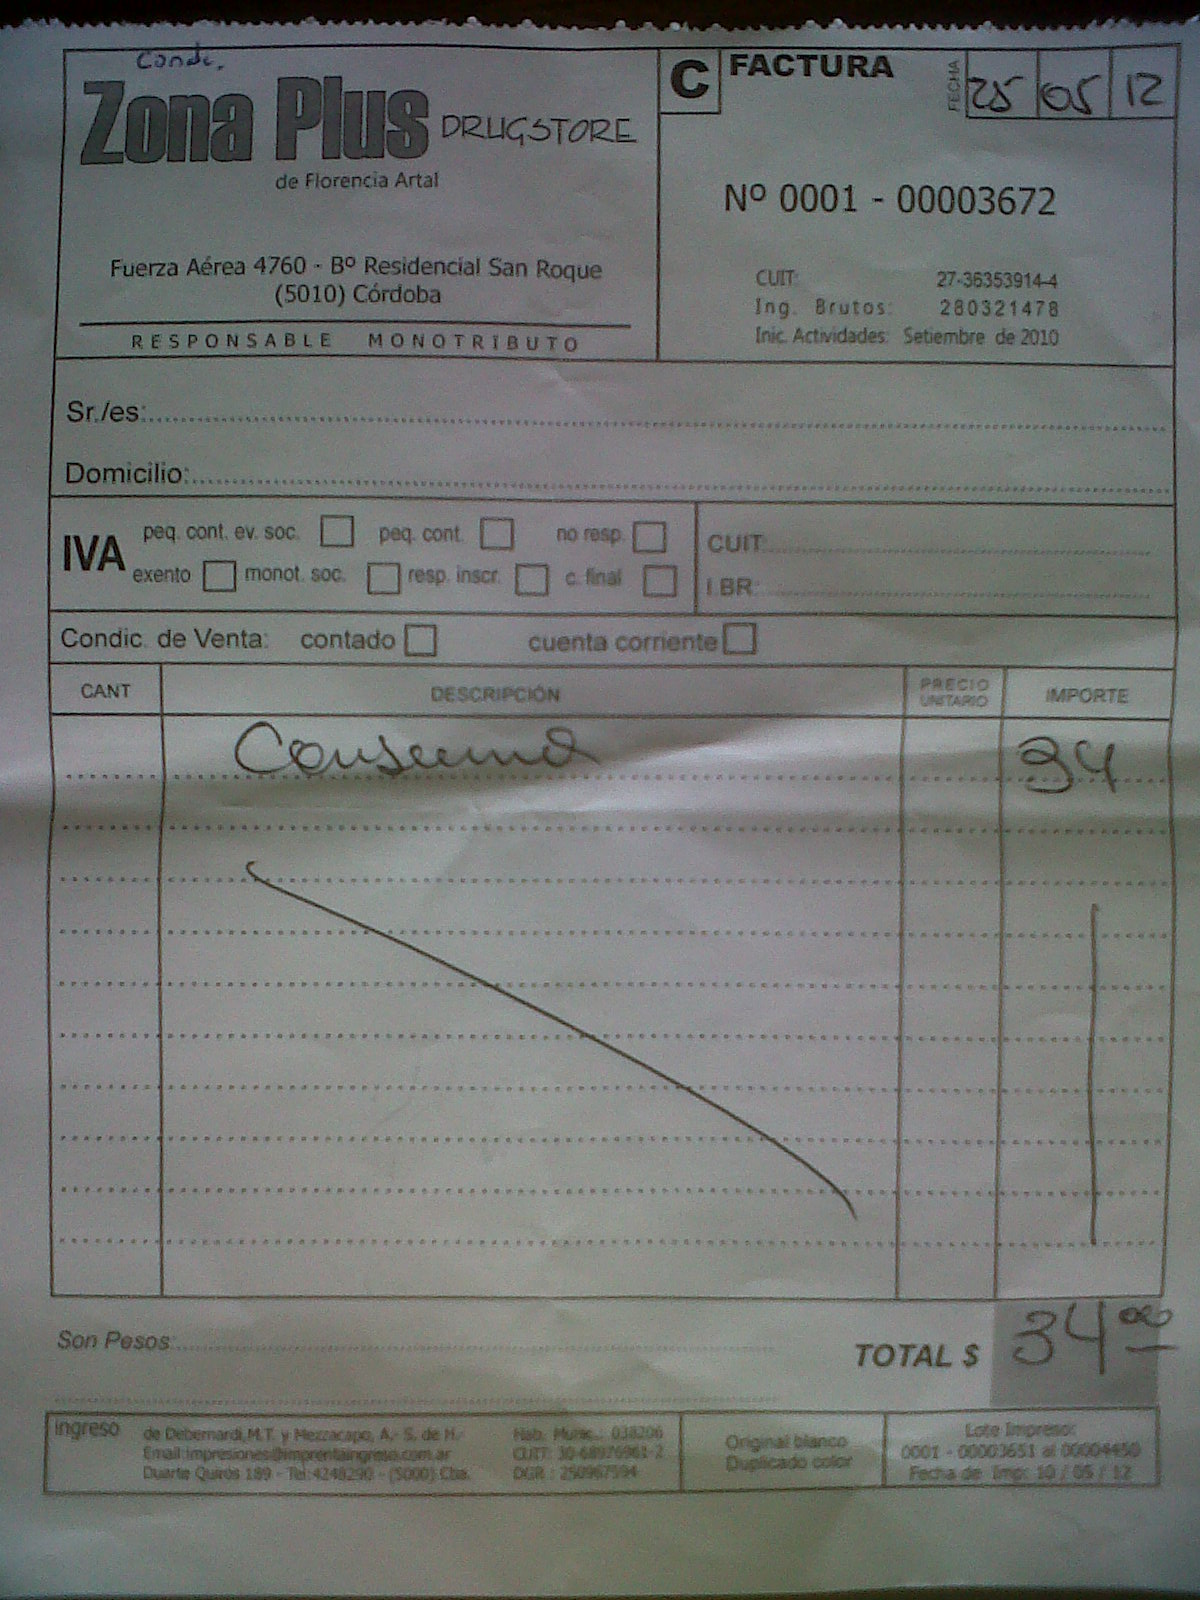 Conde.
Zona Plus DRUGSTORE
de Florencia Artal
Fuerza Aérea 4760 - Bº Residencial San Roque
(5010) Córdoba
RESPONSABLE MONOTRIBUTO
C FACTURA
FECHA 25 05 12
Nº 0001 - 00003672
CUIT: 27-36353914-4
Ing. Brutos: 280321478
Inic. Actividades: Setiembre de 2010
Sr./es:
Domicilio:
IVA
peq. cont. ev. soc. peq. cont. no resp.
exento monot. soc. resp. inscr. c. final
CUIT:
I.BR:
Condic. de Venta: contado cuenta corriente
CANT DESCRIPCIÓN PRECIO UNITARIO IMPORTE
Consumo 34
Son Pesos:
TOTAL $ 34 00
ingreso
de Debernardi, M.T. y Mezzacapo, A.- S. de H.-
Email: impresiones@imprentaingreso.com.ar
Duarte Quirós 189 - Tel: 4248290 - (5000) Cba.
Hab. Munic.: 038206
CUIT: 30-68976961-2
DGR.: 250967594
Original blanco
Duplicado color
Lote Impreso:
0001 - 00003651 al 00004450
Fecha de Imp: 10 / 05 / 12